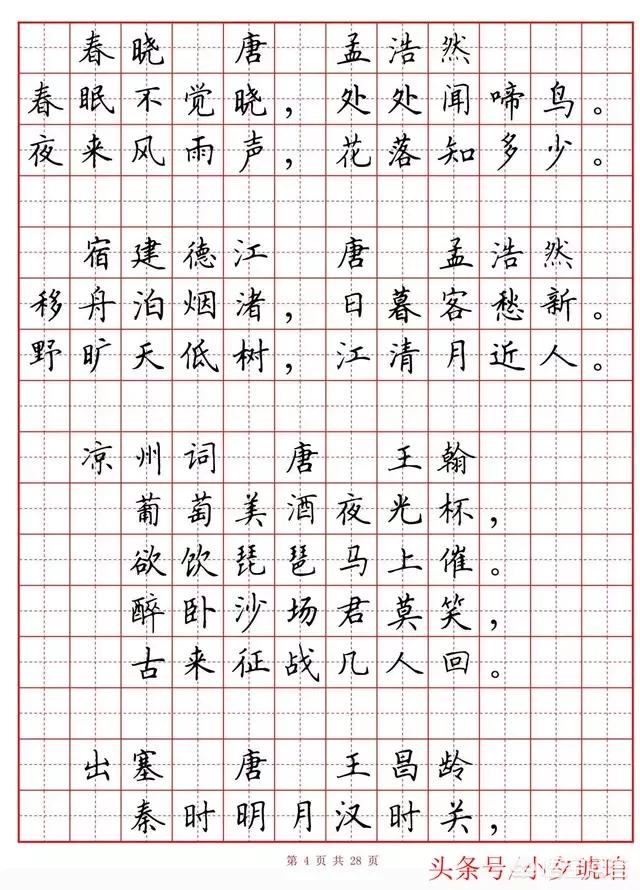 春晓 唐 孟浩然
春眠不觉晓，处处闻啼鸟。
夜来风雨声，花落知多少。
宿建德江 唐 孟浩然
移舟泊烟渚，日暮客愁新。
野旷天低树，江清月近人。
凉州词 唐 王翰
葡萄美酒夜光杯，
欲饮琵琶马上催。
醉卧沙场君莫笑，
古来征战几人回。
出塞 唐 王昌龄
秦时明月汉时关，
第 4 页 共 28 页
头条号/小夕琥珀